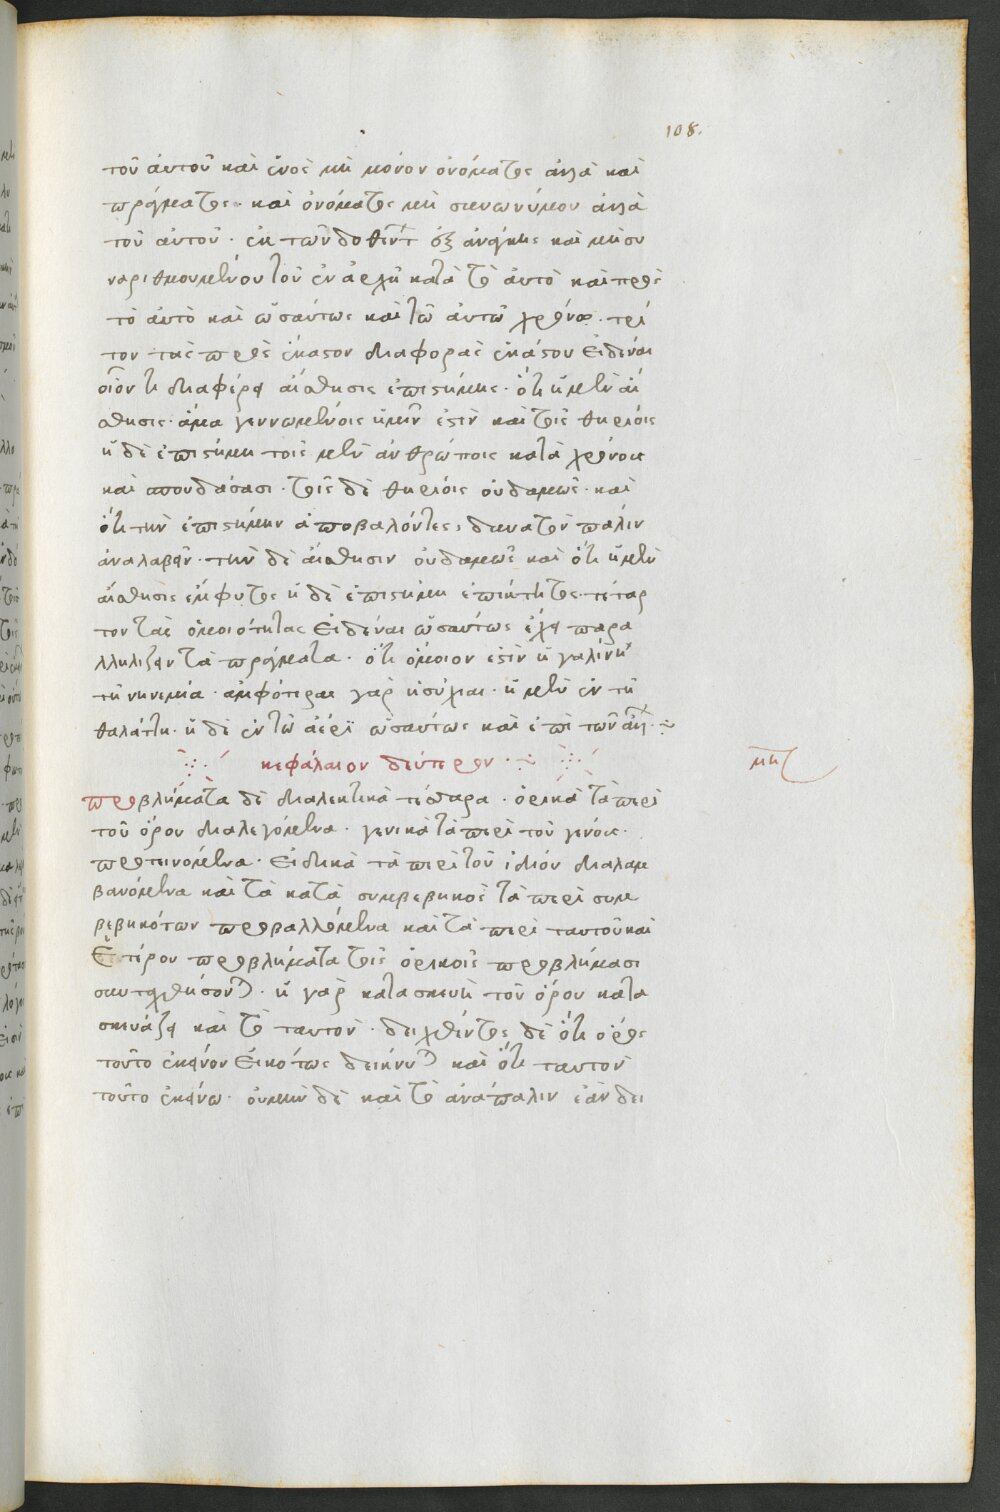 108.
τοῦ αὐτοῦ καὶ ἑνὸς μὴ μόνον ὀνόματος ἀλλὰ καὶ
πράγματος· καὶ ὀνόματος μὴ συνωνύμου ἀλλὰ
τοῦ αὐτοῦ· ἐκ τῶν δοθέντ ἐξ ἀνάγκης καὶ μὴ συ
ναριθμουμένου τοῦ ἐν ἀρχῇ κατὰ τὸ αὐτὸ καὶ πρὸς
τὸ αὐτὸ καὶ ὡσαύτως καὶ τῶ αὐτῶ χρόνω· τρί
τον τὰς πρὸς ἕκαστον διαφορὰς ἑκάστου εἰδέναι
οἷον τί διαφέρει αἴσθησις ἐπιστήμης· ὅτι ἡ μὲν αἴ
σθησις ἅμα γεννωμένοις ἡμῖν ἐστὶν καὶ τοῖς θηρίοις
ἡ δὲ ἐπιστήμη τοῖς μὲν ἀνθρώποις κατὰ χρόνους
καὶ σπουδάσασι· τοῖς δὲ θηρίοις οὐδαμῶς· καὶ
ὅτι τὴν ἐπιστήμην ἀποβαλόντες, δυνατὸν πάλιν
ἀναλαβεῖν· τὴν δὲ αἴσθησιν οὐδαμῶς καὶ ὅτι ἡ μὲν
αἴσθησις ἔμφυτος ἡ δὲ ἐπιστήμη ἐπίκτητος· τέταρ
τον τὰς ὁμοιότητας εἰδέναι ὡσαύτως ἔχει παρα
λληλίζειν τὰ πράγματα· ὅτι ὅμοιον ἐστὶν ἡ γαλήνη
τῇ νηνεμία· ἀμφότεραι γὰρ ἡσύχιαι· ἡ μὲν ἐν τῇ
θαλάττη· ἡ δὲ ἐν τῶ ἀέρι ὡσαύτως καὶ ἐπὶ τῶν ἄλλ
κεφάλαιον δεύτερον·
προβλήματα δὲ διαλεκτικὰ τέσσαρα· ὁρικὰ τὰ περὶ
τοῦ ὅρου διαλεγόμενα· γενικὰ τὰ περὶ τοῦ γένους
προτεινόμενα· εἰδικὰ τὰ περὶ τοῦ ἰδίου διαλαμ
βανόμενα καὶ τὰ κατὰ συμβεβηκὸς τὰ περὶ συμ
βεβηκότων προβαλλόμενα καὶ τὰ περὶ ταυτοῦ καὶ
ἑτέρου προβλήματα τοῖς ὁρικοῖς προβλήμασι
συνταχθήσονται· ἡ γὰρ κατασκευὴ τοῦ ὅρου κατα
σκευάζει καὶ τὸ ταυτὸν· δειχθέντος δὲ ὅτι ὅρος
τοῦτο ἐκείνου εἰκότως δείκνυται καὶ ὅτι ταυτὸν
τοῦτο ἐκείνω· οὐ μὴν δὲ καὶ τὸ ἀνάπαλιν ἐὰν δει